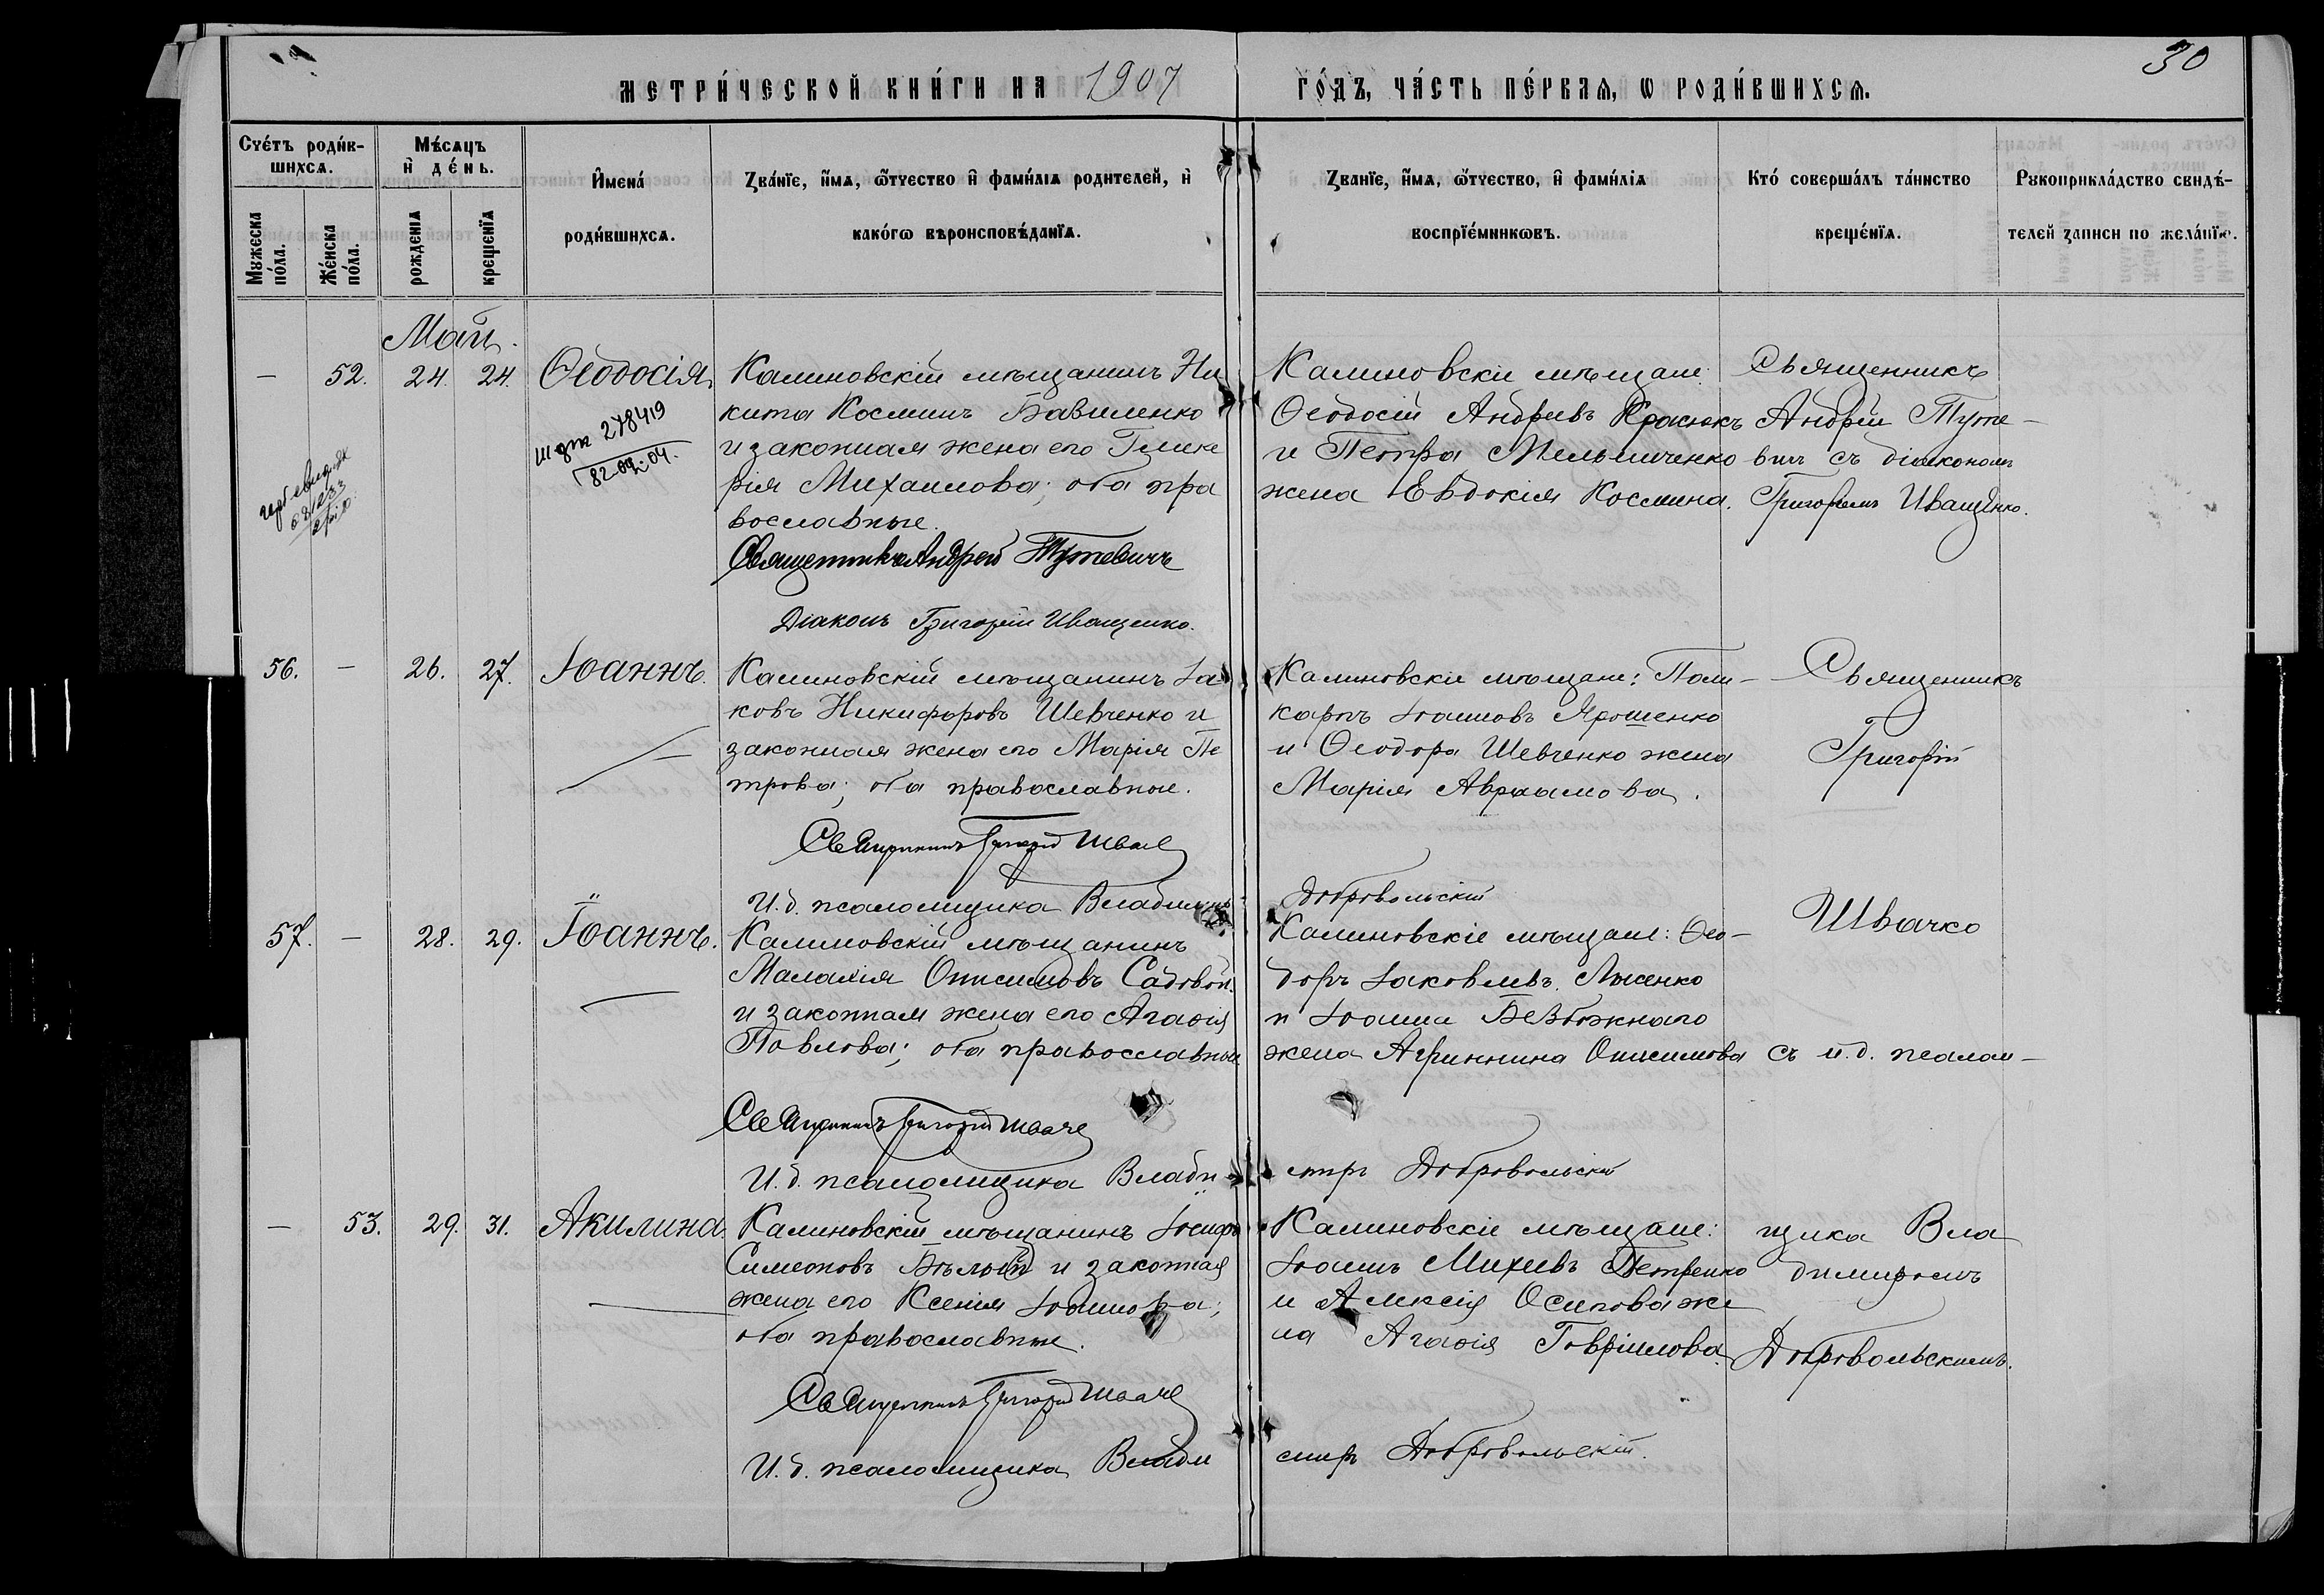 30
МЕТРИ́ЧЕСКОЙ КНИ́ГИ НА 1907 ГО́ДЪ, ЧА́СТЬ ПЕ́РВАѦ, Ѡ РОДИ́ВШИХСѦ.
Сче́тъ роди́в-
шихсѧ.
Мꙋжеска
по́ла.
Же́нска
по́ла.
Мѣ́сѧцъ
и҆ де́нь.
рожденїѧ
крещенїѧ
И҆мена́
роди́вшихсѧ.
Зва́нїе, и҆́мѧ, ѻ҆́тчество и҆ фами́лїѧ родителей, и҆
како́гѡ вѣроисповѣ́данїѧ.
Званїе, и҆́мѧ, ѻ҆́тчество, и҆ фами́лїѧ
воспрїе́мникѡвъ.
Кто́ соверша́лъ та́инство
креще́нїѧ.
Рꙋкоприкла́дство свидѣ́-
телей записи по жела́нїю.
Май.
— 52. 24. 24. Ѳеодосія
278419
82 04.
Калиновскій мѣщанинъ Ни
кита Косминъ Вавиленко
и законная жена его Глике
рія Михаилова; оба пра
вославные.
Священникъ Андрей Тутевичъ
Діаконъ Григорій Иващенко.
Калиновскіе мѣщане:
Ѳеодосій Андреевъ Краснокъ
и Петра Мельниченко
жена Евдокія Космина.
Священникъ
Андрей Туте-
вичъ съ діакономъ
Григоріемъ Иващенко.
56. — 26. 27. Іоаннъ.
Калиновскій мѣщанинъ Іа
ковъ Никифоровъ Шевченко и
законная жена его Марія Пе
трова; оба православные.
Священникъ Григорій Швач
И. д. псаломщика Владимиръ Добровольскій
Калиновскіе мѣщане: Поли-
карпъ Іоанновъ Ярошенко
и Ѳеодора Шевченко жена
Марія Авраамова.
Священникъ
Григорій
57. — 28. 29. Іоаннъ.
Калиновскій мѣщанинъ
Малахія Онисимовъ Садовой
и законная жена его Агаѳія
Павлова; оба православные
Священникъ Григорій Швач
И. д. псаломщика Влади- миръ Добровольскій
Калиновскіе мѣщане: Ѳео-
доръ Іаковлевъ Лысенко
и Іоанна Безбожнаго
жена Агриппина Онисимова
Швачко
съ и. д. псалом-
— 53. 29. 31. Акилина.
Калиновскій мѣщанинъ Іосифъ
Симеоновъ Бѣлый и законная
жена его Ксенія Іоаннова;
оба православные.
Священникъ Григорій Швач
И. д. псаломщика Влади миръ Добровольскій.
Калиновскіе мѣщане:
Іоаннъ Михеевъ Петренко
и Алексія Осипова же
на Агаѳія Гавріилова.
щика Вла
димиромъ
Добровольскимъ.